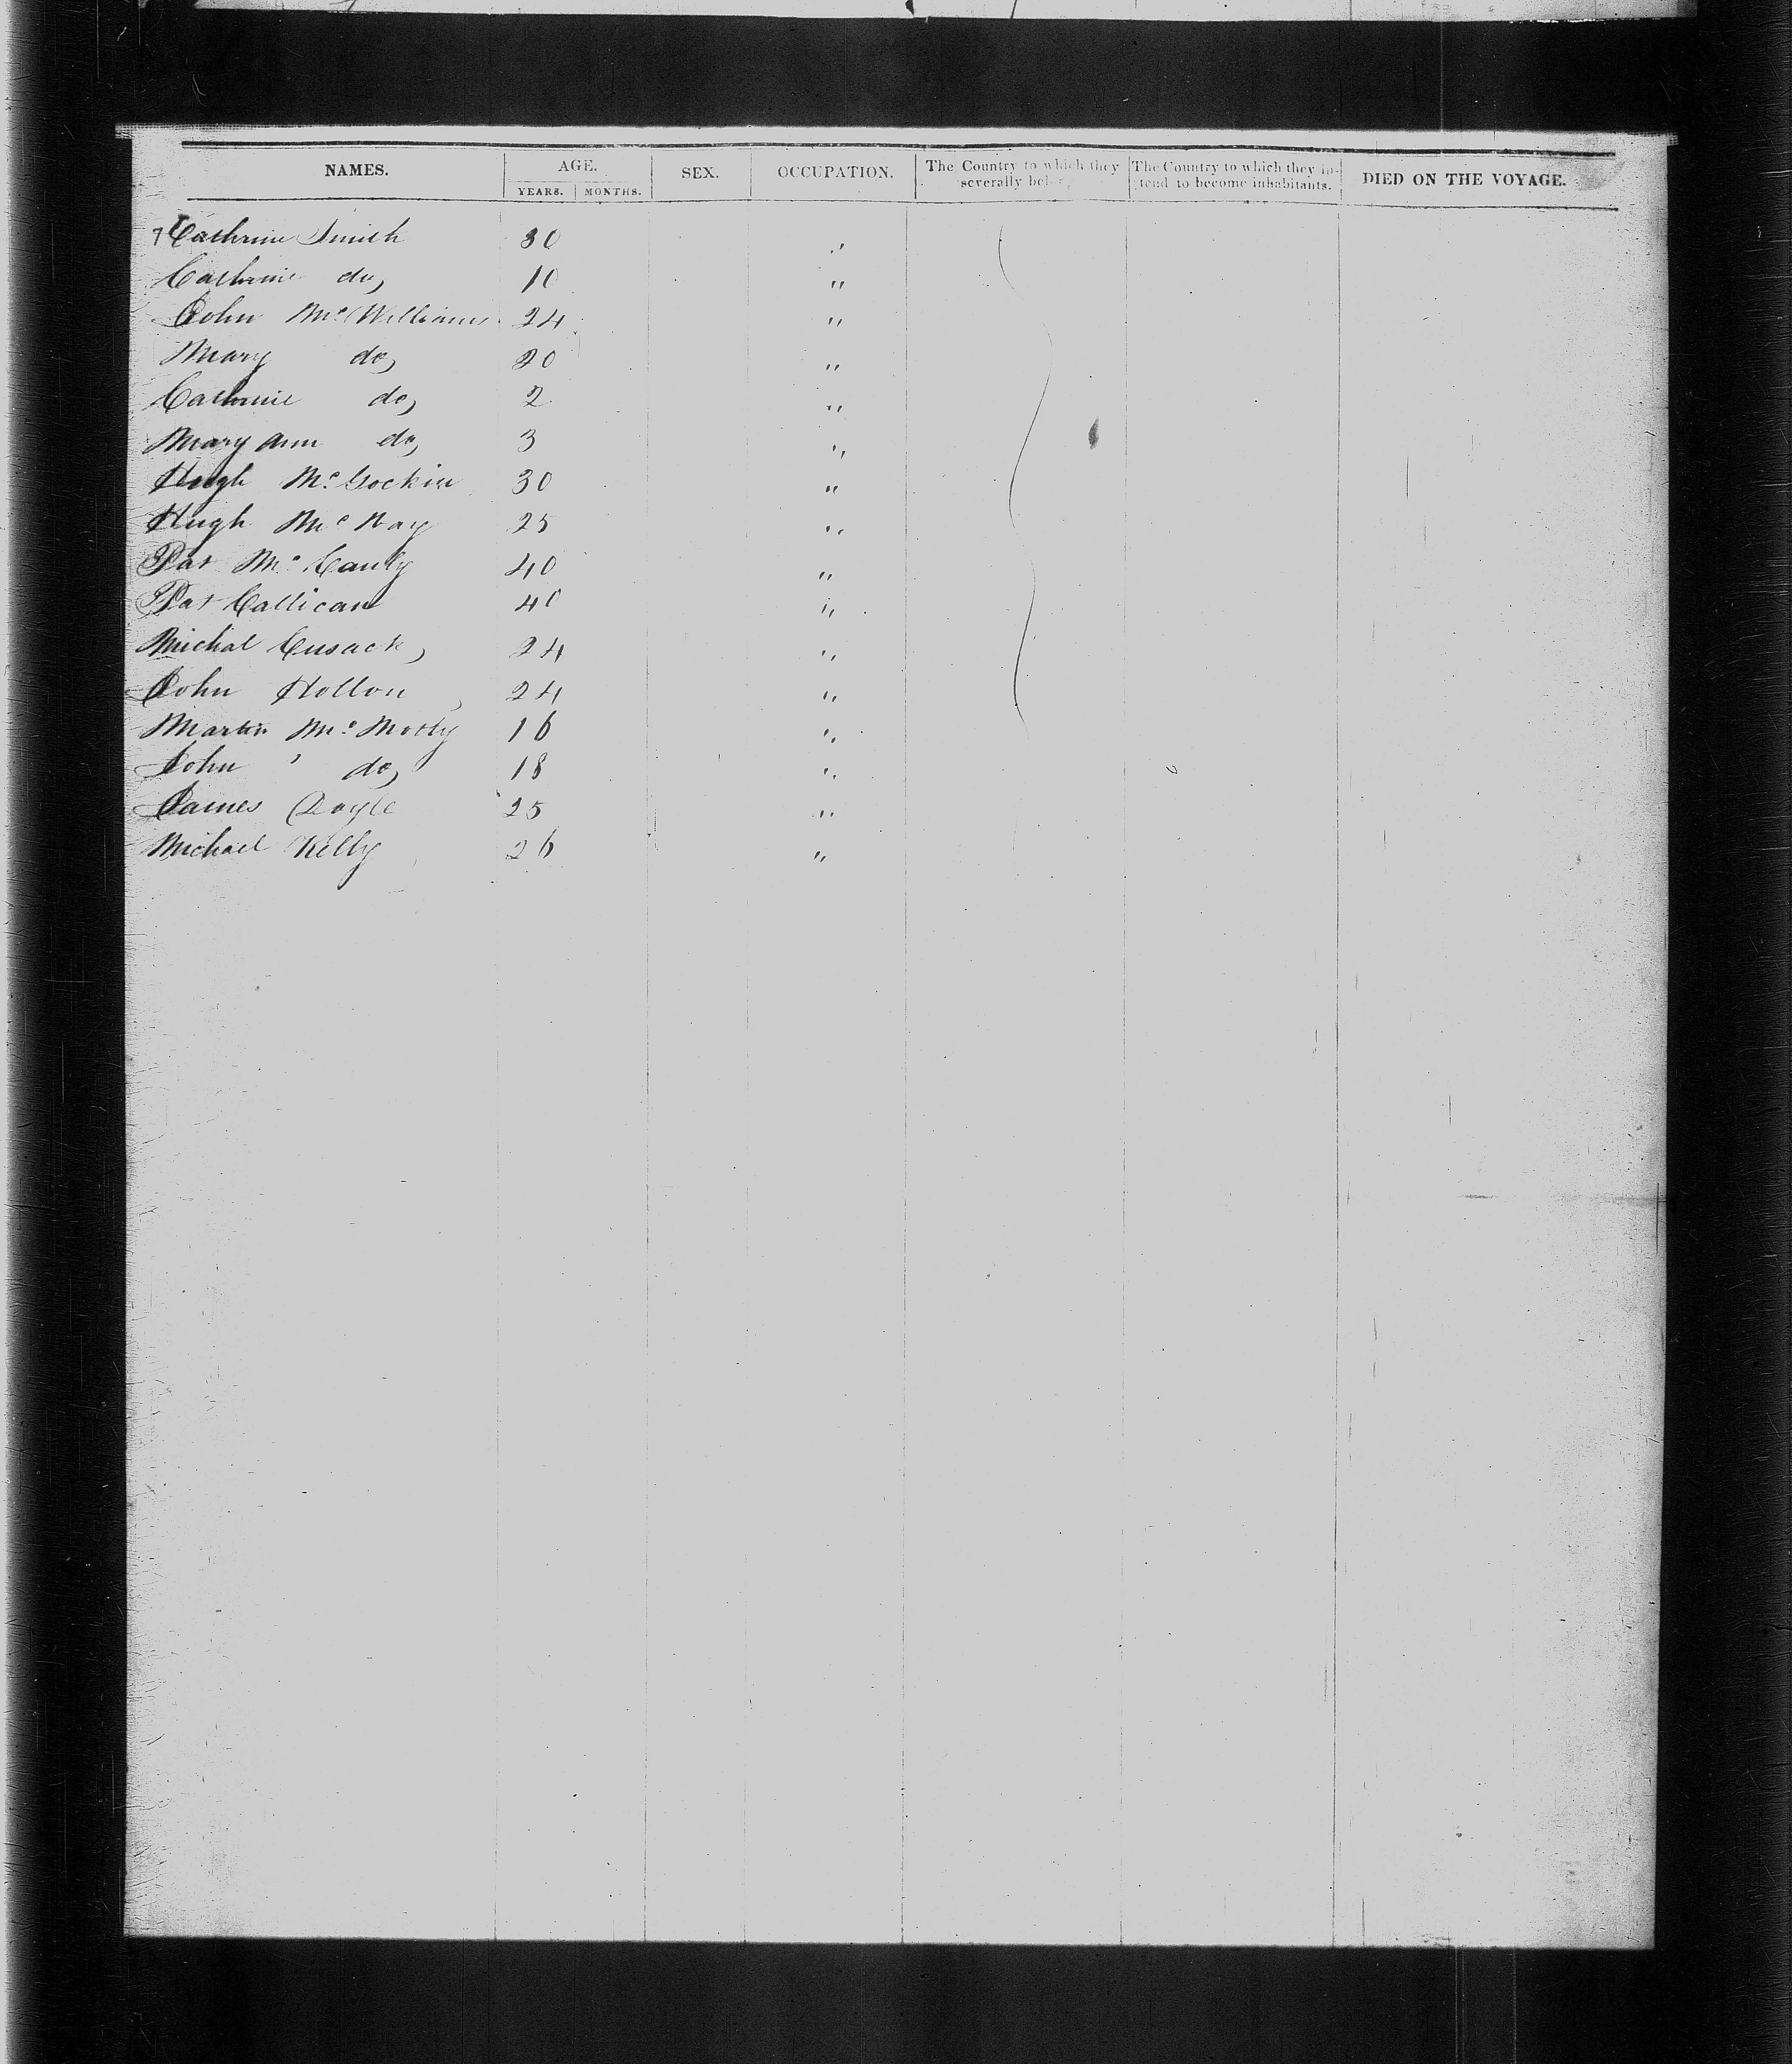 NAMES. AGE. YEARS. MONTHS. SEX. OCCUPATION. The Country to which they severally The Country to which they intend to become inhabitants. DIED ON THE VOYAGE.
Cathrine Smith 30 "
Cathrine do, 10 "
John McWilliams 24 "
Mary do, 20 "
Cathrine do, 2 "
Mary Ann do, 3 "
Hugh Mc Gockin 30 "
Hugh Mc 25 "
Pat Mc Cauly 40 "
Pat Callican 40 "
Michal Cusack, 24 "
John Hollon 24 "
Martin Mc 16 "
John ' do, 18 "
James Doyle 25 "
Michael Kelly 26 "